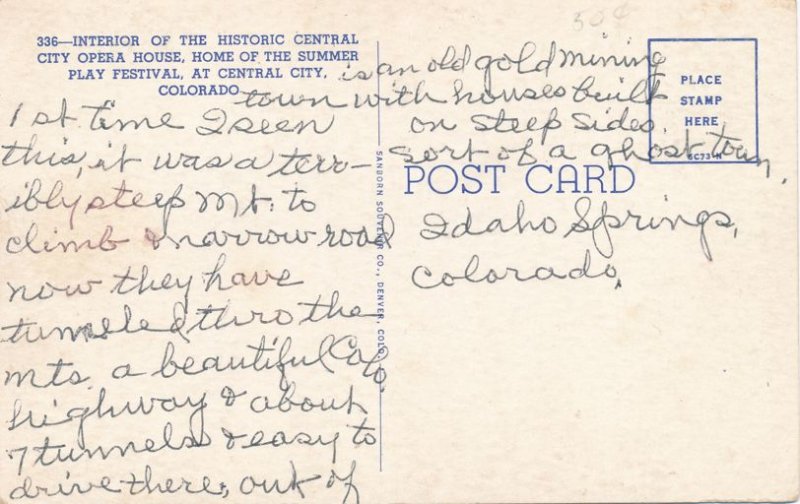 336—INTERIOR OF THE HISTORIC CENTRAL
CITY OPERA HOUSE, HOME OF THE SUMMER
PLAY FESTIVAL, AT CENTRAL CITY,
COLORADO
1st time I seen
this, it was a terr-
ibly steep Mt. to
climb & narrow road
now they have
tunneled thro the
mts. a beautiful Colo.
highway & about
7 tunnels & easy to
drive there, out of
Idaho Springs,
Colorado,
is an old gold mining
town with houses built
on steep sides.
sort of a ghost town.
50¢
PLACE
STAMP
HERE
6C73-N
POST CARD
SANBORN SOUVENIR CO., DENVER, COLO.